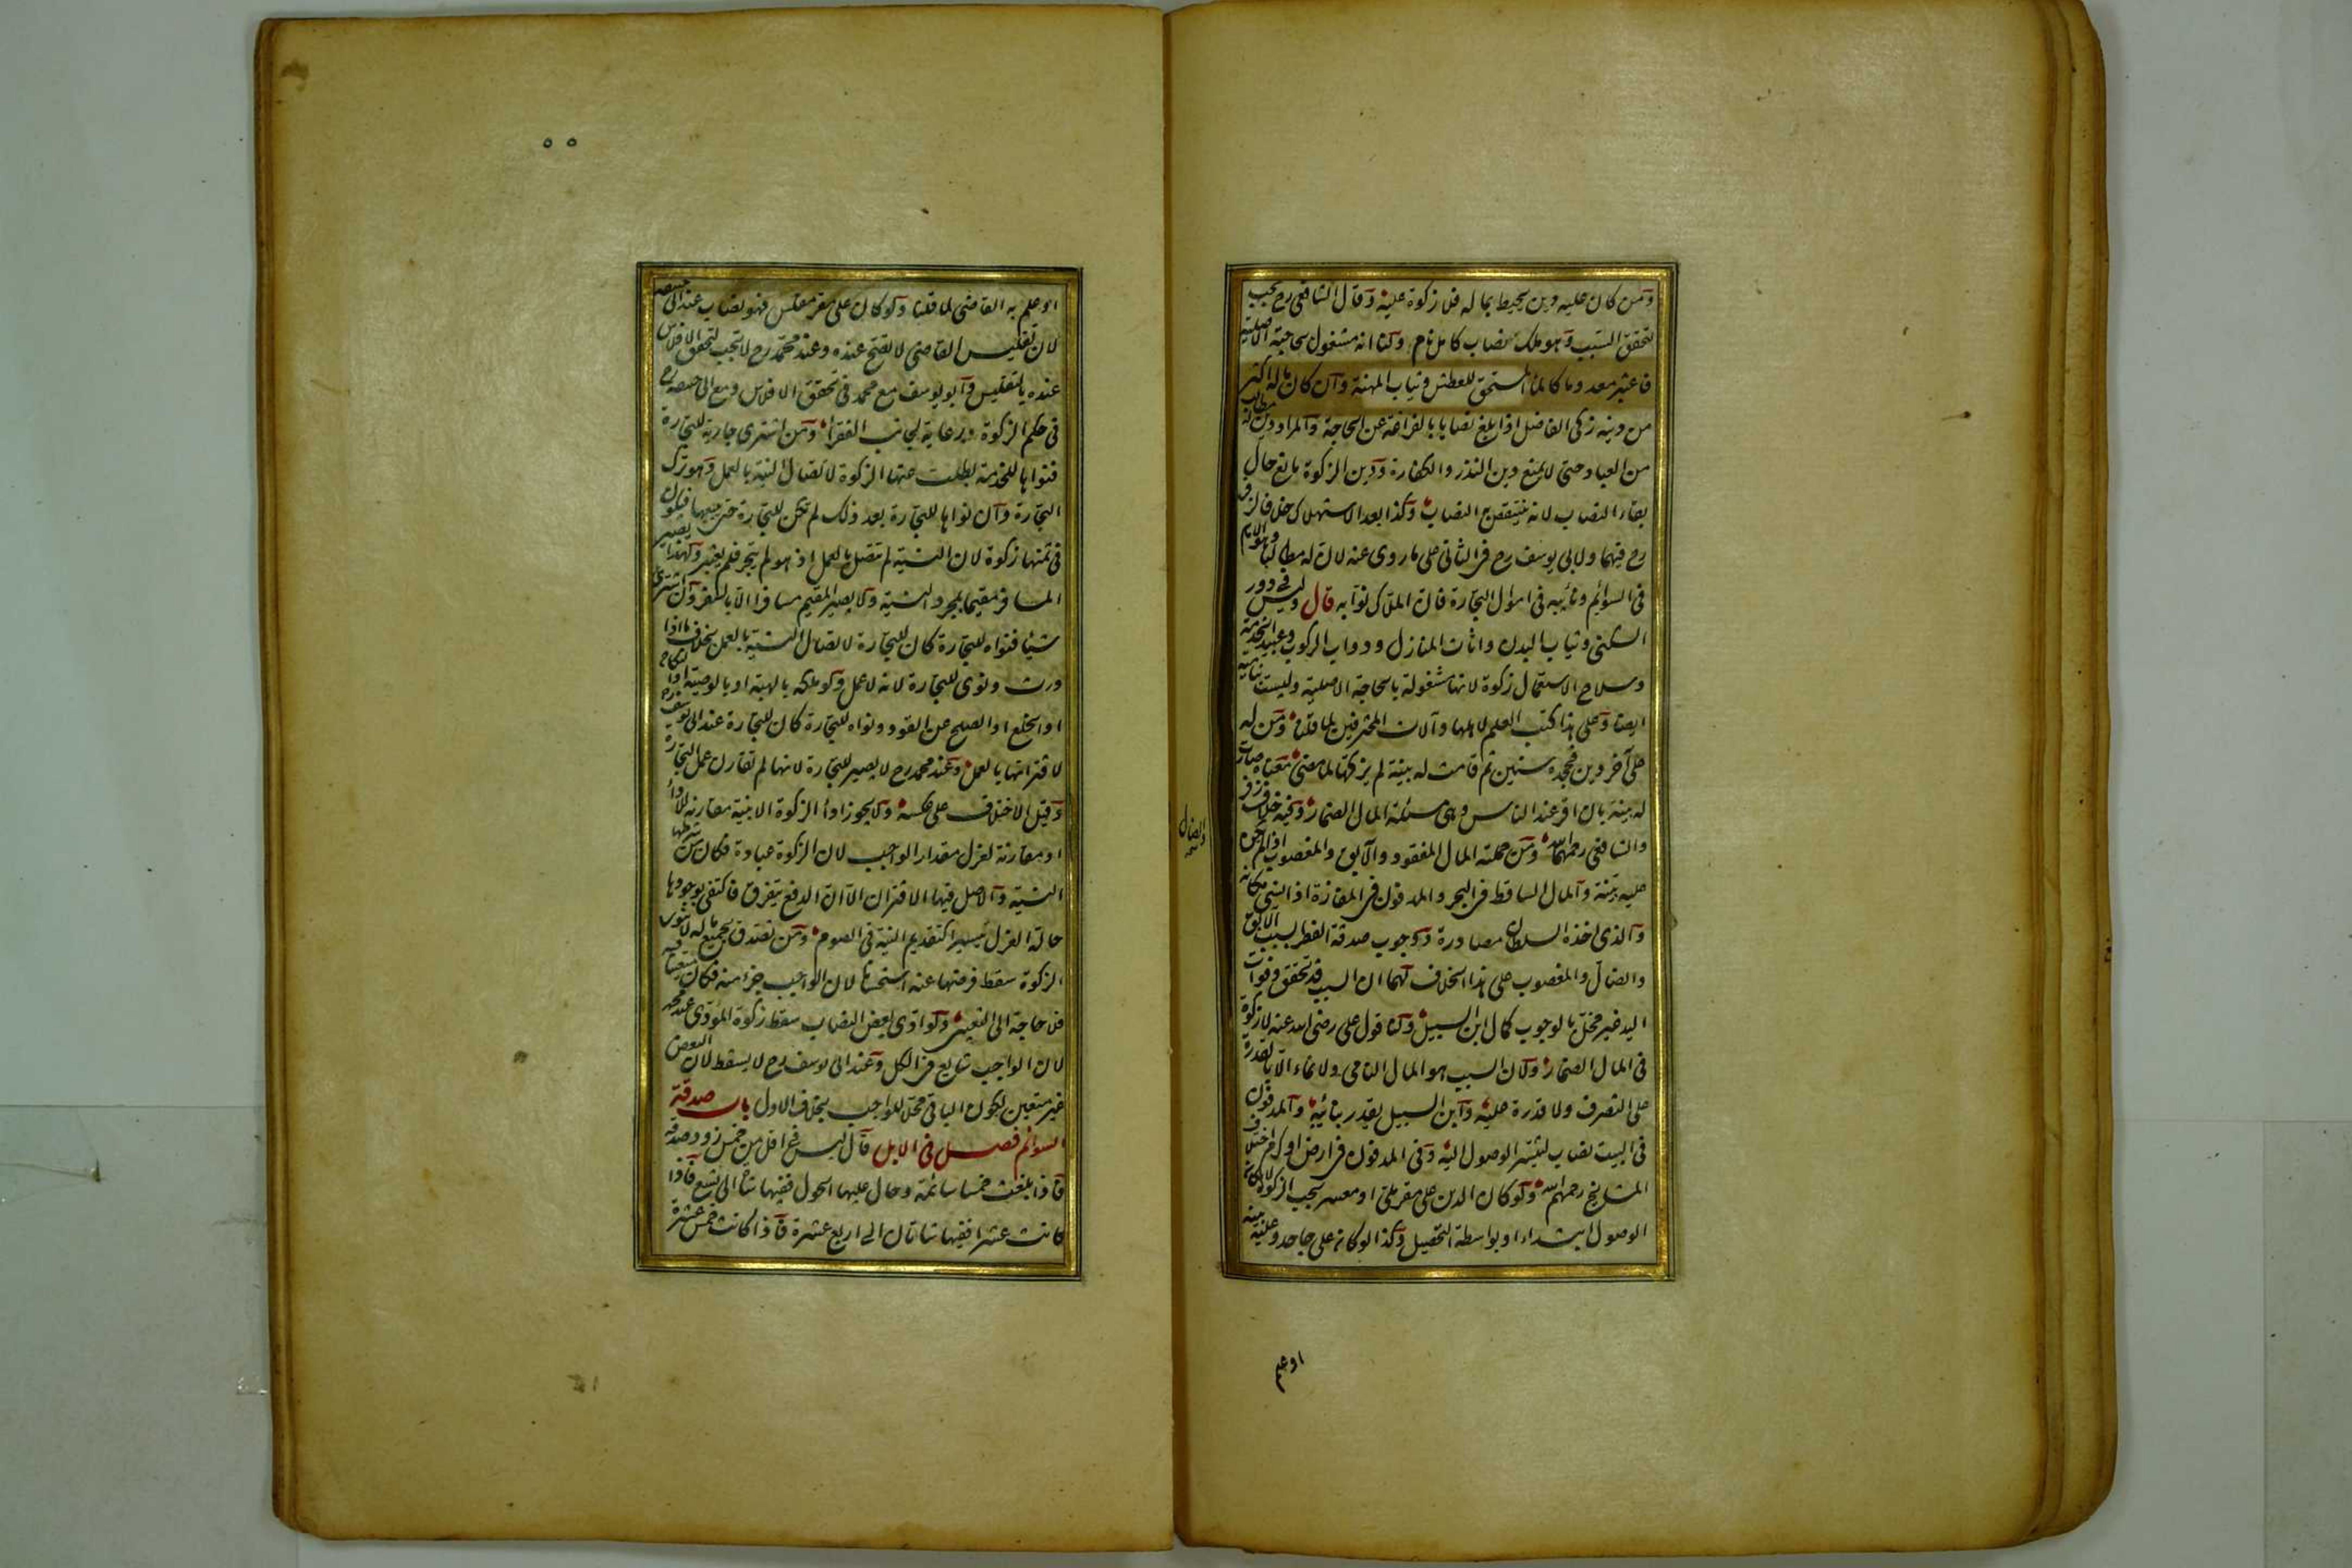 ومن كان عليه دين يحيط بماله فلا زكوة عليه وقال الشافعى رح تجب
لتحقق السبب وهو ملك نصاب كامل نام ولنا انه مشغول بحاجته الاصلية
فاعتبر معدوما كالماء المستحق للعطش وثياب المهنة وان كان ماله اكثر
من دينه زكى الفاضل اذا بلغ نصابا بالفراغه عن الحاجة والمراد دين له مطالب
من العباد حتى لا يمنع دين النذر والكفارة ودين الزكوة مانع حال
بقاء النصاب لانه ينتقص به النصاب وكذا بعد الاستهلاك خلافا لزفر
رح فيهما ولابى يوسف رح فى الثانى على ما روى عنه لان له مطالبا وهو الامام
فى السوائم ونائبه فى اموال التجارة فان الملاك نوابه قال وليس فى دور
السكنى وثياب البدن واثاث المنازل ودواب الركوب وعبيد الخدمة
وسلاح الاستعمال زكوة لانها مشغولة بالحاجة الاصلية وليست بنامية
ايضا وعلى هذا كتب العلم لاهلها وآلات المحترفين لما قلنا ومن له
على آخر دين فجحده سنين ثم قامت له بينة لم يزكه لما مضى معناه صارت
له بينة بان اقر عند الناس وهى مسئلة المال الضمار وفيه خلاف زفر
والشافعى رحمهما الله ومن جملته المال المفقود والآبق والمغصوب اذا لم يكن
عليه بينة والمال الساقط فى البحر والمدفون فى المفازة اذا نسى مكانه
والذى اخذه السلطان مصادرة ووجوب صدقة الفطر بسبب الآبق
والضال والمغصوب على هذا الخلاف لهما ان السبب قد تحقق وفوات
اليد غير مخل بالوجوب كمال ابن السبيل ولنا قول على رضى الله عنه لا زكوة
فى المال الضمار ولان السبب هو المال النامى ولا نماء الا بالقدرة
على التصرف ولا قدرة عليه وابن السبيل يقدر بنائبه والمدفون
فى البيت نصاب لتيسر الوصول اليه وفى المدفون فى ارض او كرم اختلاف
المشايخ رحمهم الله ولو كان الدين على مقر ملى او معسر تجب الزكوة لامكان
الوصول ابتداء او بواسطة التحصيل وكذا لو كان على جاحد وعليه بينة
والضال
اوعلم
او علم به القاضى لما قلنا ولو كان على مقر مفلس فهو نصاب عند ابى حنيفة
لان تفليس القاضى لا يصح عنده وعند محمد رح لا تجب لتحقق الافلاس
عنده بالتفليس وابو يوسف مع محمد فى تحقق الافلاس ومع ابى حنيفة رح
فى حكم الزكوة رعاية لجانب الفقراء ومن اشترى جارية للتجارة
فنواها للخدمة بطلت عنها الزكوة لاتصال النية بالعمل وهو ترك
التجارة وان نواها للتجارة بعد ذلك لم تكن للتجارة حتى يبيعها فيكون
فى ثمنها زكوة لان النية لم تتصل بالعمل اذ هو لم يتجر فلم يعتبر ولهذا يصير
المسافر مقيما بمجرد النية ولا يصير المقيم مسافرا الا بالسفر وان اشترى
شيئا فنواه للتجارة كان للتجارة لاتصال النية بالعمل بخلاف ما اذا
ورث ونوى للتجارة لانه لا عمل ولو ملكه بالهبة او بالوصية او النكاح
او الخلع او الصلح عن القود ونواه للتجارة كان للتجارة عند ابى يوسف رح
لاقترانها بالعمل وعند محمد رح لا يصير للتجارة لانها لم تقارن عمل التجارة
وقيل الاختلاف على عكسه ولا يجوز اداء الزكوة الا بنية مقارنة للاداء
او مقارنة لعزل مقدار الواجب لان الزكوة عبادة فكان من شرطها
النية والاصل فيها الاقتران الا ان الدفع يتفرق فاكتفى بوجودها
حالة العزل تيسيرا كتقديم النية فى الصوم ومن تصدق بجميع ماله لا ينوى
الزكوة سقط فرضها عنه استحسانا لان الواجب جزء منه فكان متعينا فيه
فلا حاجة الى التعيين ولو ادى بعض النصاب سقط زكوة المؤدى عند محمد
لان الواجب شايع فى الكل وعند ابى يوسف رح لا يسقط لان البعض
غير متعين لكون الباقى محلا للواجب بخلاف الاول باب صدقة
السوائم فصل فى الابل قال ليس فى اقل من خمس ذود صدقة
فاذا بلغت خمسا سائمة وحال عليها الحول ففيها شاة الى تسع فاذا
كانت عشرا ففيها شاتان الى اربع عشرة فاذا كانت خمس عشرة